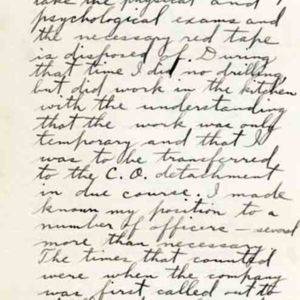 take the physical and
psychological exams and
the necessary red tape
is disposed of. During
that time I did no drilling,
but did work in the kitchen
with the understanding
that the work was only
temporary and that I
was to be transferred
to the C.O. detachment
in due course. I made
known my position to a
number of officers — several
more than necessary.
The times that counted
were when the company
was first called out to